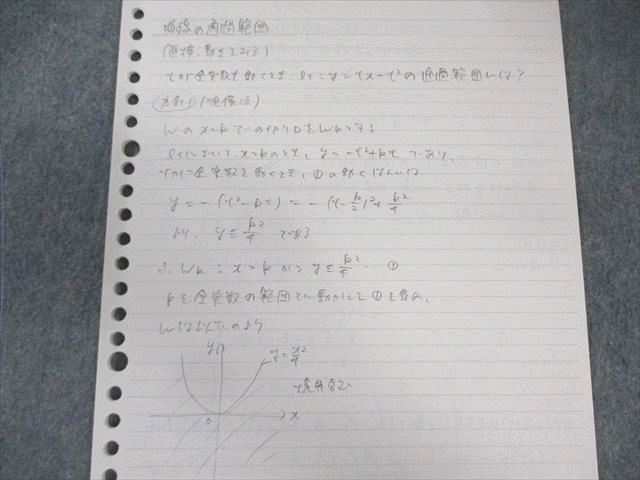 曲線の通過範囲
(直接、動かしてみる)
tが全実数を動くとき、lt: y=tx-t²の通過範囲Wは?
方針1 (順像法)
Wのx=kでの切り口をWkとする
ltにおいて x=kのとき、y=-t²+kt であり、
tが全実数を動くとき、①の動くはんいは
y = -(t²-kt) = -(t-k/2)²+k²/4
より、y≦k²/4 である
∴ Wk : x=k かつ y≦k²/4 … ①
kを全実数の範囲で動かして①を集め、
Wは以下のよう
y
y=x²/4
境界含む
0
x